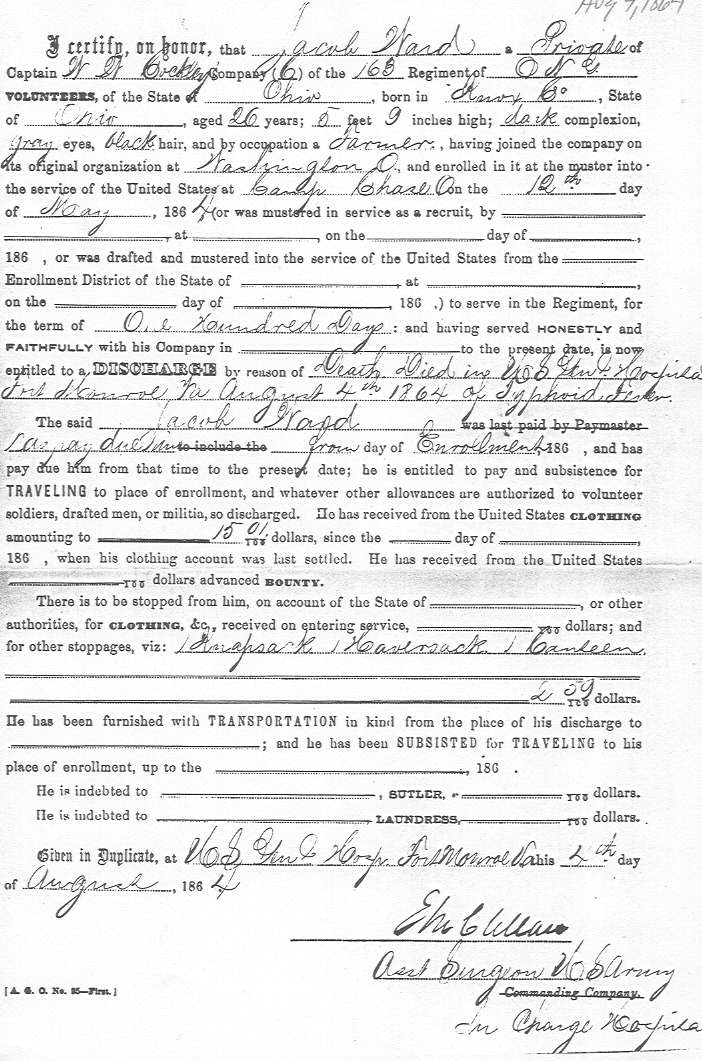 Aug 7, 1864
I certify, on honor, that Jacob Ward a Private of
Captain W W Cockley's Company (C) of the 163 Regiment of O N G
VOLUNTEERS, of the State of Ohio, born in Knox Co, State
of Ohio, aged 26 years; 5 feet 9 inches high; dark complexion,
gray eyes, black hair, and by occupation a Farmer, having joined the company on
its original organization at Washington O, and enrolled in it at the muster into
the service of the United States at Camp Chase O on the 12th day
of May, 1864 (or was mustered in service as a recruit, by
, at , on the day of ,
186 , or was drafted and mustered into the service of the United States from the
Enrollment District of the State of , at
on the day of , 186 ,) to serve in the Regiment, for
the term of One Hundred Days: and having served HONESTLY and
FAITHFULLY with his Company in to the present date, is now
entitled to a DISCHARGE by reason of Death Died in U S Gen. Hospital
Fort Monroe Va August 4th 1864 of Typhoid Fever.
The said Jacob Ward was last paid by Paymaster
has pay due him to include the from day of Enrollment 186 , and has
pay due him from that time to the present date; he is entitled to pay and subsistence for
TRAVELING to place of enrollment, and whatever other allowances are authorized to volunteer
soldiers, drafted men, or militia, so discharged. He has received from the United States CLOTHING
amounting to 15 01/100 dollars, since the day of ,
186 , when his clothing account was last settled. He has received from the United States
/100 dollars advanced BOUNTY.
There is to be stopped from him, on account of the State of , or other
authorities, for CLOTHING, &c., received on entering service, /100 dollars; and
for other stoppages, viz: 1 Knapsack 1 Haversack 1 Canteen.
59/100 dollars.
He has been furnished with TRANSPORTATION in kind from the place of his discharge to
; and he has been SUBSISTED for TRAVELING to his
place of enrollment, up to the , 186 .
He is indebted to , SUTLER, /100 dollars.
He is indebted to LAUNDRESS, /100 dollars.
Given in Duplicate, at U S Gen Hosp Fort Monroe Va this 4th day
of August, 1864
E McClellan
Asst Surgeon U S Army
[A. G. O. No. 95—First.] Commanding Company.
In Charge Hospital